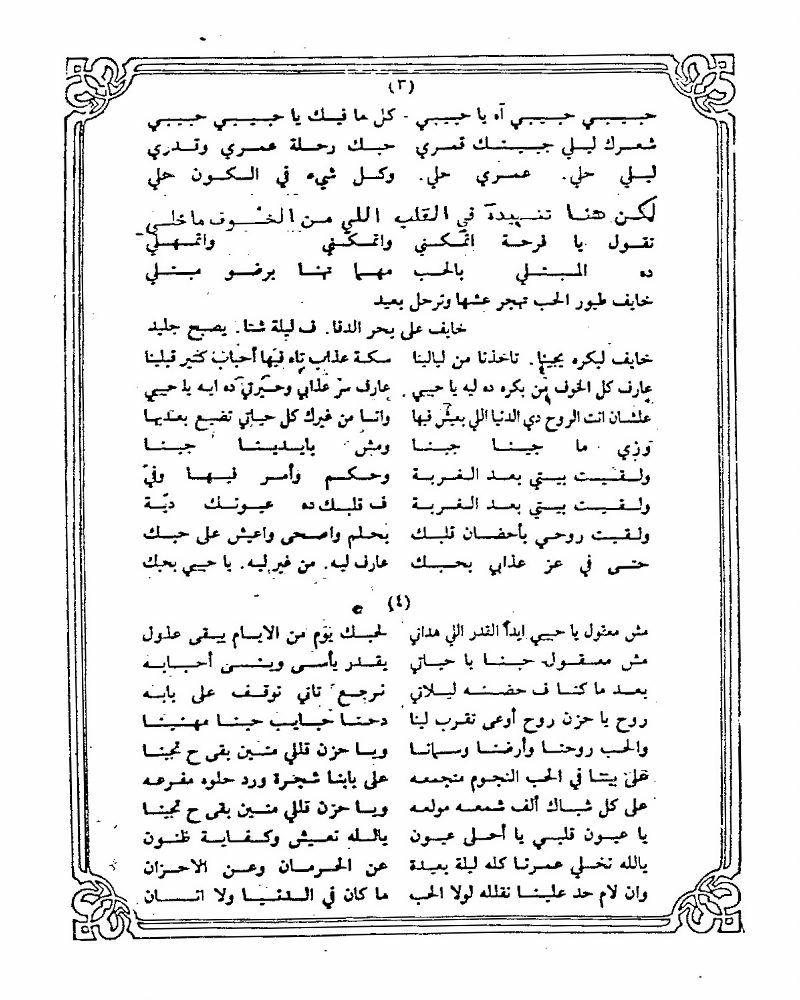 (٣)
حبيبي حبيبي آه يا حبيبي - كل ما فيك يا حبيبي حبيبي
شعرك ليلي جبينك قمري حبك رحلة عمري وقدري
ليلي حلي. عمري حلي. وكل شيء في الكون حلي
لكن هنا تنهيدة في القلب اللي من الخوف ماخلي
تقول يا فرحة اتمكني واتمكني واتمهلي
ده المبتلي بالحب مهما تهنا برضو مبتلي
خايف طيور الحب تهجر عشها وترحل بعيد
خايف على بحر الدفا. ف ليلة شتا. يصبح جليد
خايف لبكره يجينا. تاخذنا من ليالينا سكة عذاب تاه فيها أحباب كثير قبلينا
عارف كل الخوف من بكره ده ليه يا حبيبي عارف سر عذابي وحيرتي ده ايه يا حبيبي
علشان انت الروح دي الدنيا اللي بعيش فيها وانا من غيرك كل حياتي تضيع بعديها
وزي ما جينا جينا ومش بايدينا جينا
ولقيت بيتي بعد الغربة وحكم وأمر فيها وفيّ
ولقيت بيتي بعد الغربة ف قلبك ده عيونك ديّة
ولقيت روحي بأحضان قلبك بحلم واصحى واعيش على حبك
حتى في عز عذابي بحبك عارف ليه. من غير ليه. يا حبيبي بحبك
(٤)
مش معقول يا حبيبي ابداً القدر اللي هداني لحبك يوم من الايام يبقى عذول
مش معقول حبنا يا حياتي يقدر يأسى وينسى أحبابه
بعد ما كنا ف حضنه ليلاتي نرجع تاني نوقف على بابه
روح يا حزن روح أوعى تقرب لينا دحنا حبايب حبنا مهنينا
والحب روحنا وأرضنا وسمانا ويا حزن قللي منين بقى ح تجينا
على بيتنا في الحب النجوم متجمعه على بابنا شجرة ورد حلوه مفرعه
على كل شباك ألف شمعه مولعه ويا حزن قللي منين بقى ح تجينا
يا عيون قلبي يا أحلى عيون يالله نعيش وكفاية ظنون
يالله نخلي عمرنا كله ليلة بعيدة عن الحرمان وعن الاحزان
وان لام حد علينا نقلله لولا الحب ما كان في الدنيا ولا انسان